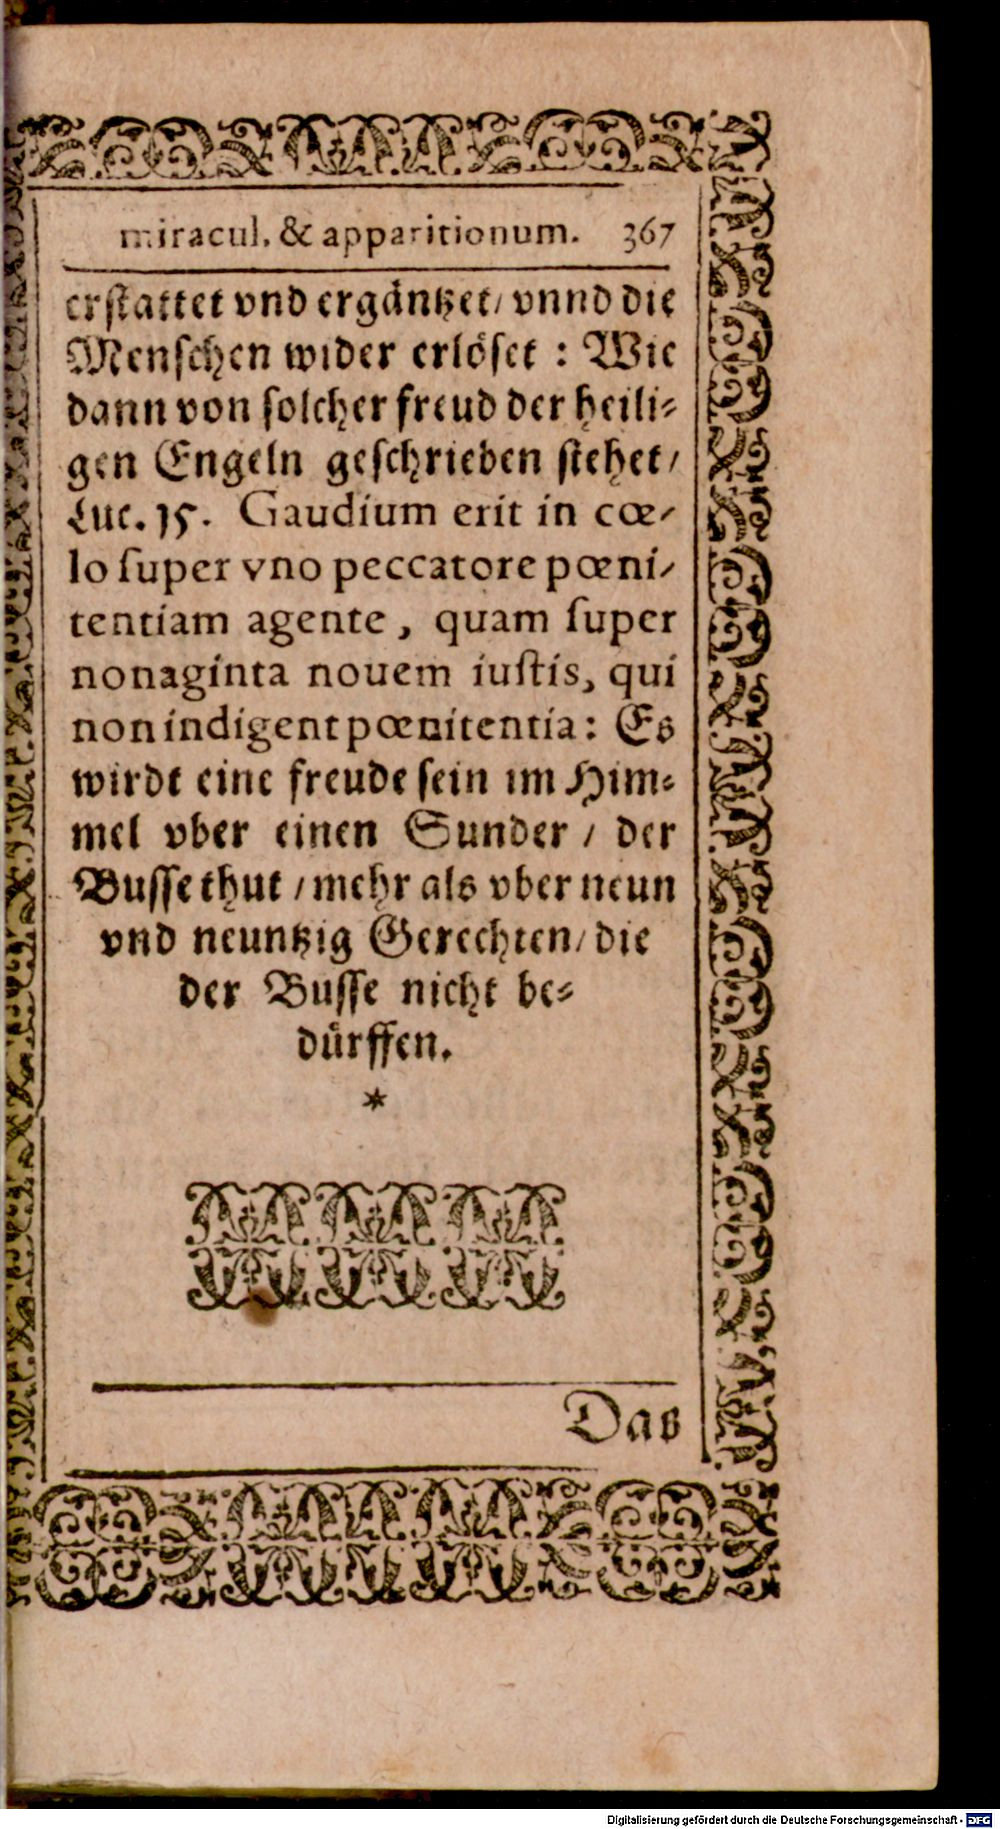 miracul. & apparitionum. 367
erstattet vnd ergäntzet/ vnnd die
Menschen wider erlöset : Wie
dann von solcher freud der heili-
gen Engeln geschrieben stehet/
Luc. 15. Gaudium erit in cœ-
lo ſuper vno peccatore pœni-
tentiam agente, quam ſuper
nonaginta nouem iuſtis, qui
non indigent pœnitentia: Es
wirdt eine freude sein im Him-
mel vber einen Sunder / der
Busse thut / mehr als vber neun
vnd neuntzig Gerechten/ die
der Busse nicht be-
dürffen.
*
Das
Digitalisierung gefördert durch die Deutsche Forschungsgemeinschaft - DFG